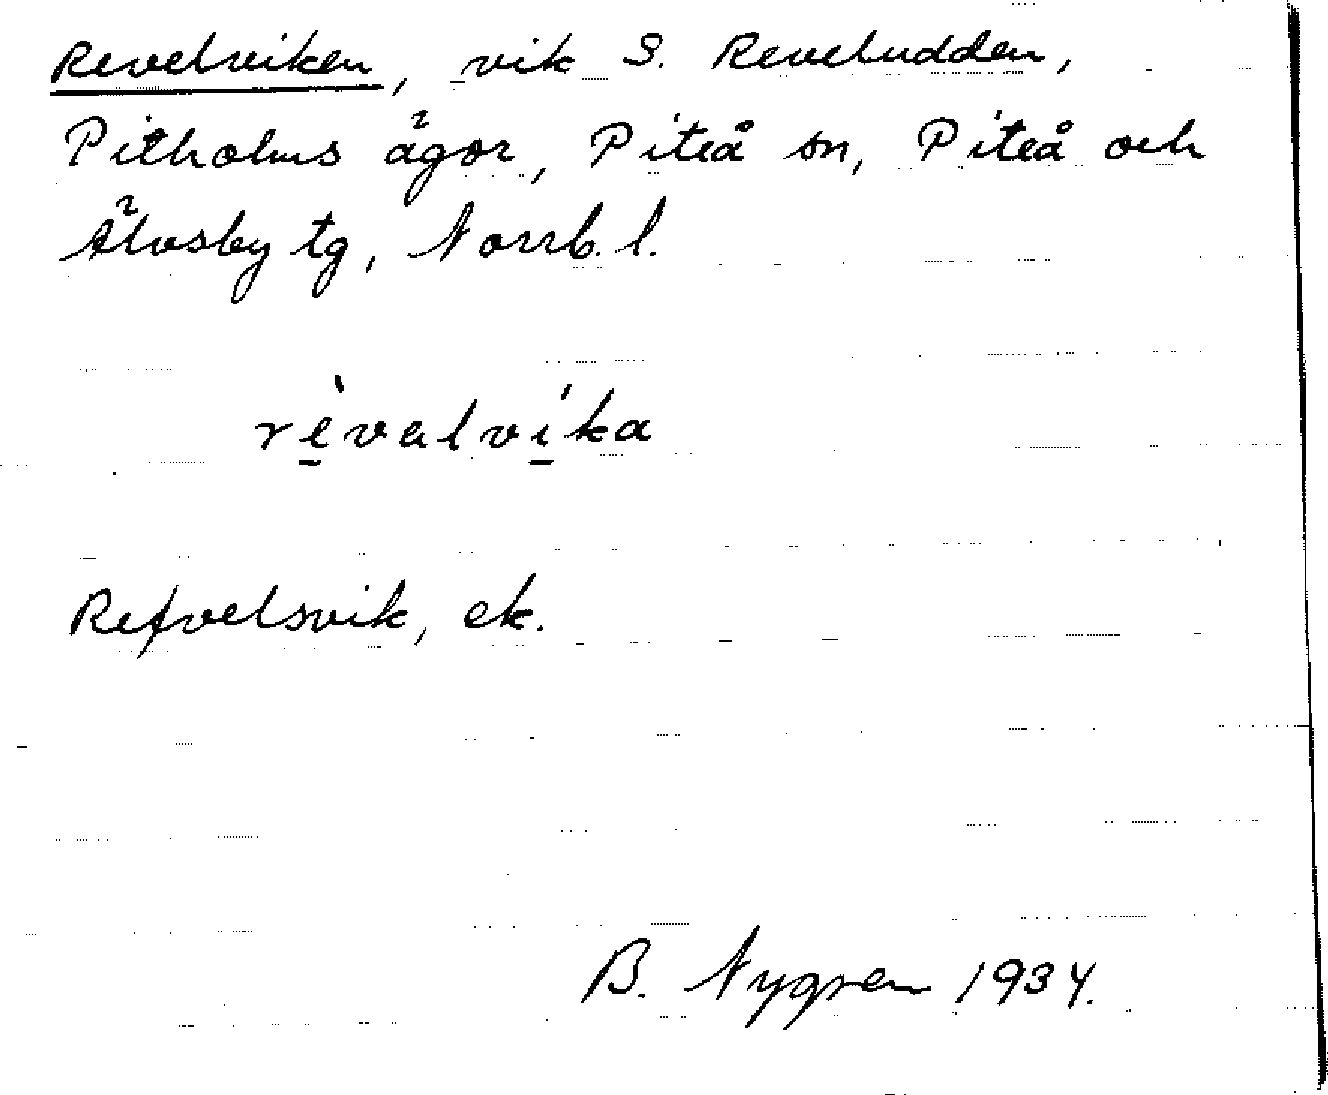 Revelviken, vik S. Reveludden,
Pitholms ägor, Piteå sn, Piteå och
Älvsby tg, Norrb. l.
rèvalvíka
Refvelsvik, ek.
B. Nygren 1934.